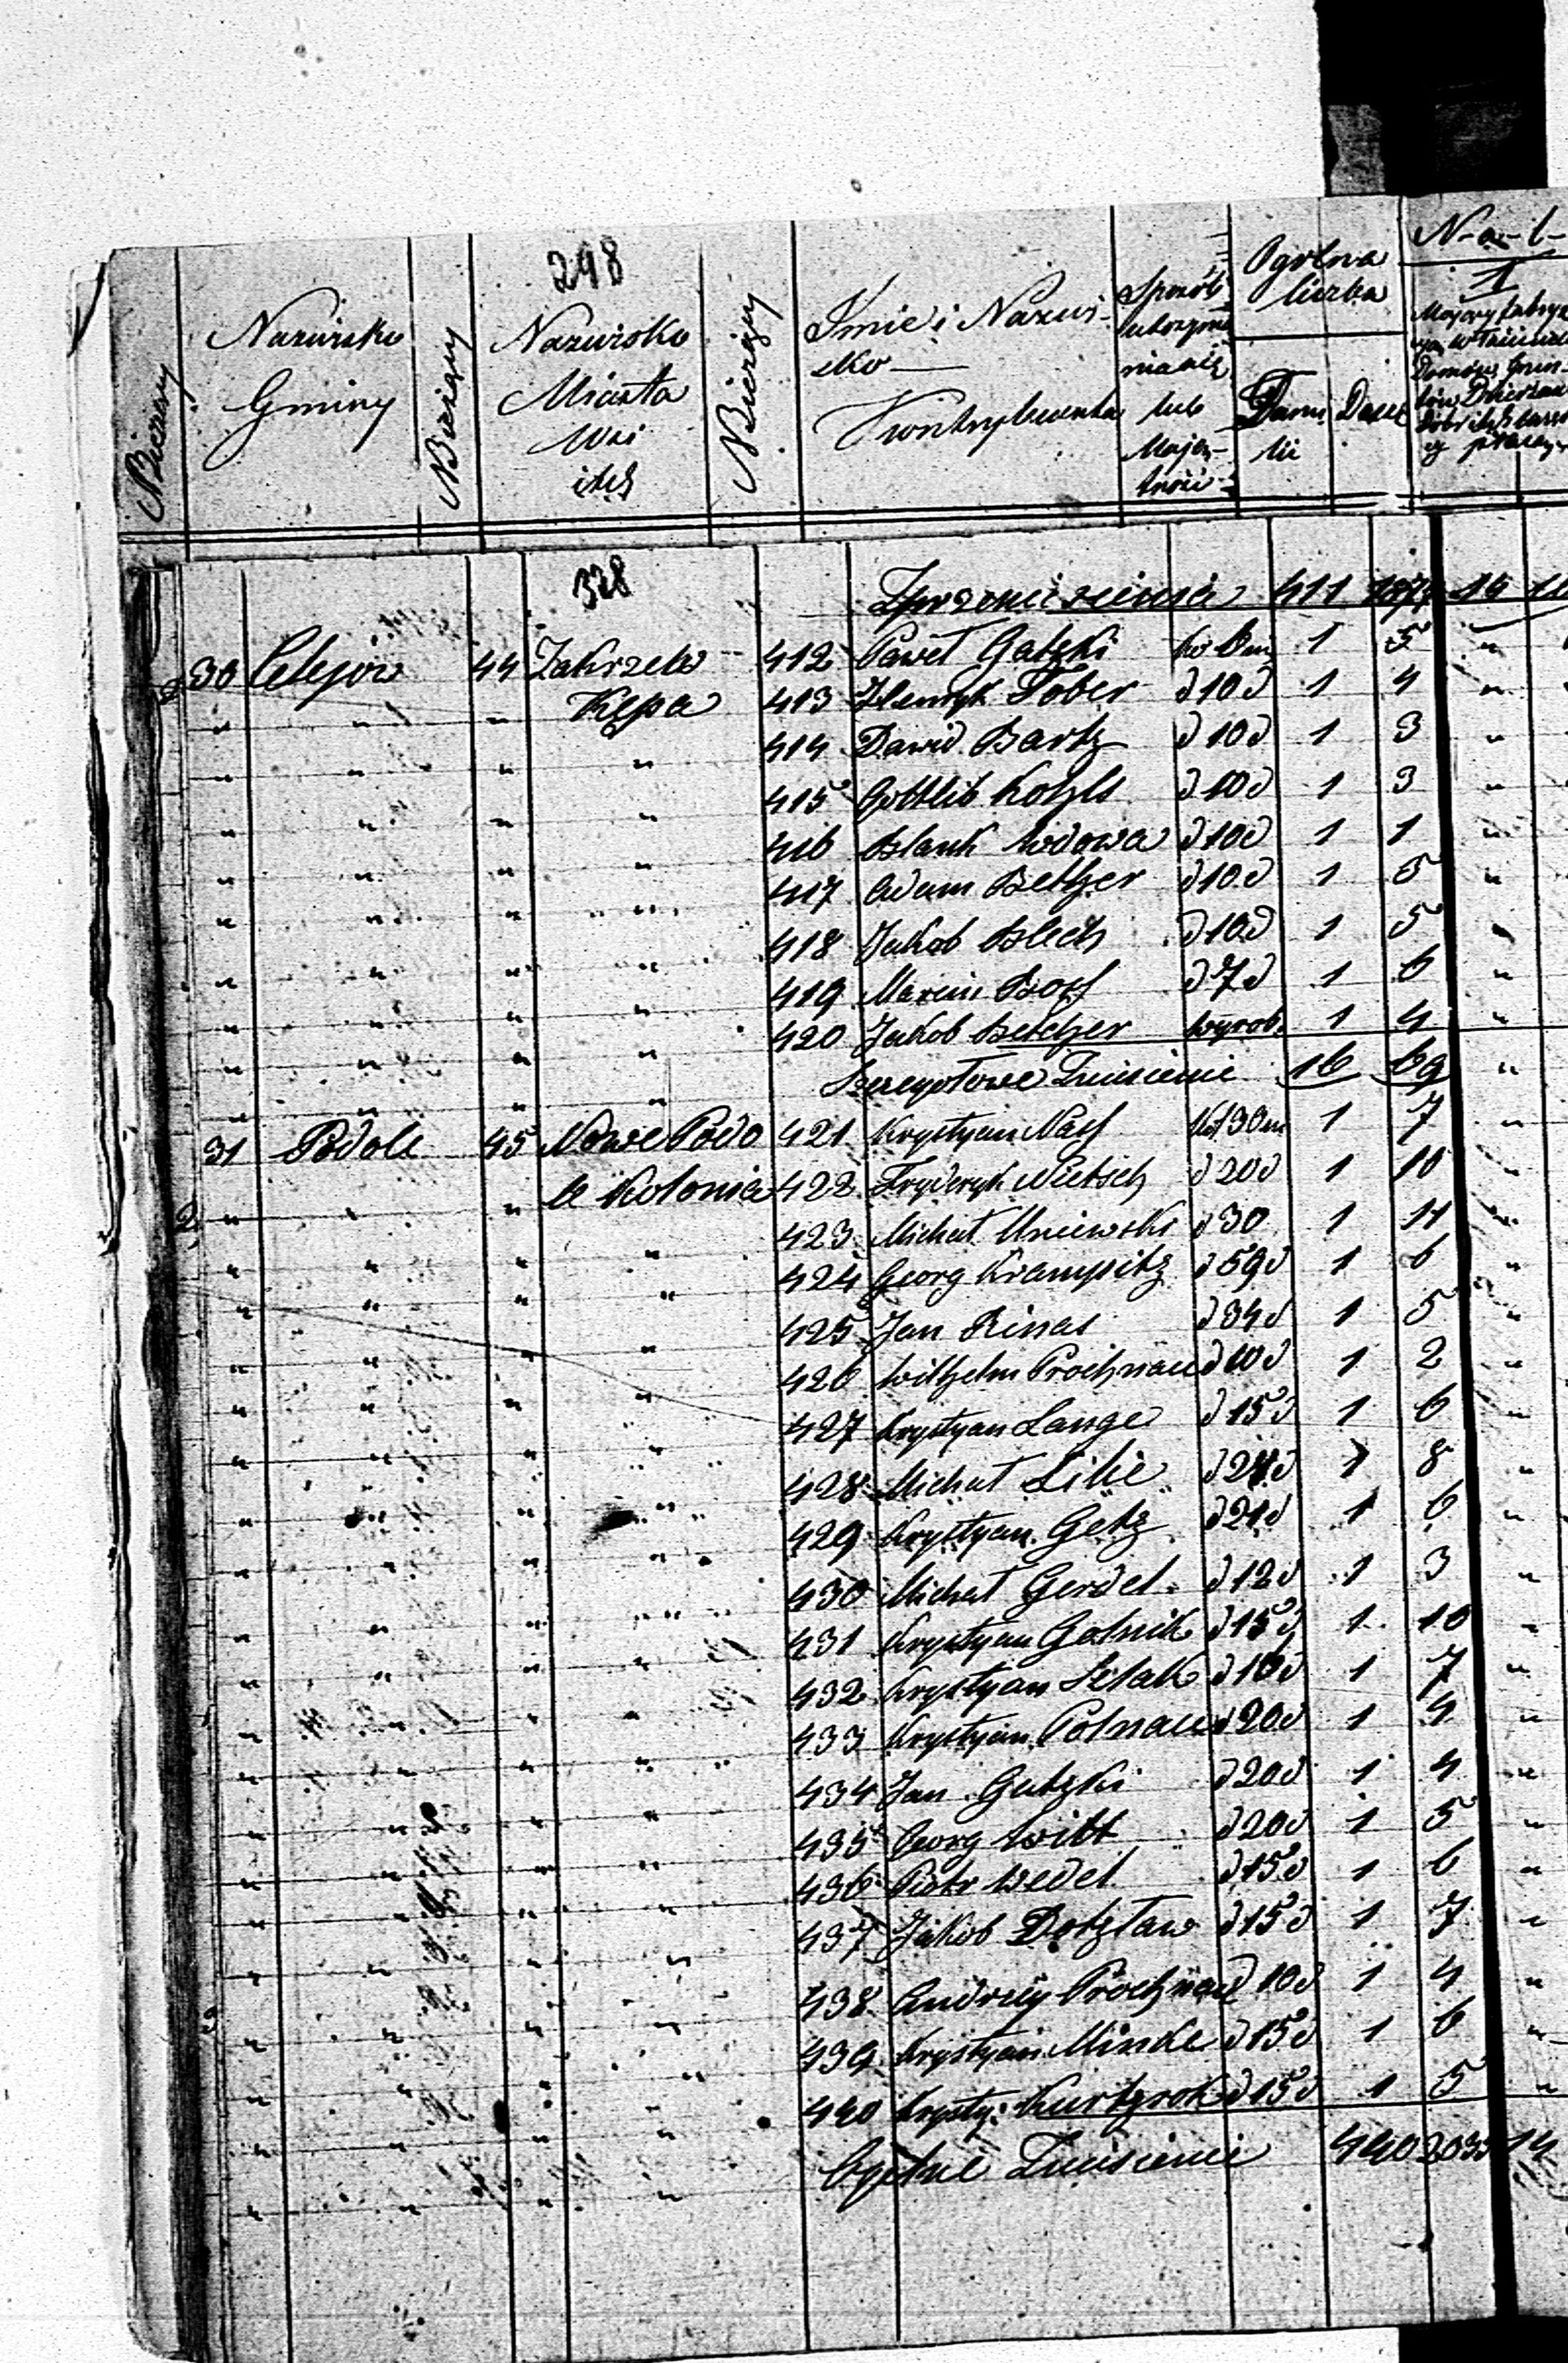 298
N Bieżący Nazwisko Gminy N Bieżący Nazwisko Miasta Wsi itd N Bieżący Imie i Nazwisko Kontrybuenta Sposób utrzymania lub Majętności Ogólna liczba Familii Dusz N-a-l-
1
328
Z przeniesienia 411 14
30 Celejów 44 Zakrzew 412 Paweł Gatzki 1 5 "
" " " Kępa 413 Henryk Tober d 10 d 1 4 "
" " " " 414 Dawid Bartz d 10 d 1 3 "
" " " " 415 Gottlib d 10 d 1 3 "
" " " " 416 Blank Wdowa d 10 d 1 1 "
" " " " 417 Adam Beltzer d 10 d 1 5 "
" " " " 418 Jakob Blech d 10 d 1 5
" " " " 419 Marcin d 7 d 1 6 "
" " " " 420 Jakob wyrob. 1 4 "
Szczegółowe Zniesienie 16 69 "
31 Podole 45 Nowe Podo 421 Krystyan Nass 1 7 "
le Kolonia 422 Fryderyk Nietsch d 20 d 1 10
" " " 423 Michał Uniewski d 30 1 11
" " " " 424 Georg Krampitz d 59 d 1 6 "
" " " " 425 Jan Rinas d 34 d 1 5 "
" " " " 426 Wilhelm Prochnau d 10 d 1 2 "
" " " " 427 Krystyan Lange d 15 d 1 6 "
" " " " 428 Michał Lilie 1 8 "
" " " " 429 Krystyan Getz d 21 d 1 6 "
" " " " 430 Michał Gerdel d 12 d 1 3 "
" " " " 431 Krystyan Golnik d 15 d 1 10 "
" " " " 432 Krystyan Selak 1 7 "
" " " " 433 Krystyan Polnau d 20 d 1 4 "
" " " " 434 Jan Gutzki d 20 d 1 4 "
" " " " 435 Georg Witt d 20 d 1 5 "
" " " " 436 Piotr Wedel d 15 d 1 6 "
" " " " 437 Jakob Dotzław d 15 d 1 7 "
" " " " 438 Andrzey Prochnau d 10 d 1 4 "
" " " " 439 Krystyan Minke d 15 d 1 6 "
" " " " 440 Krysty: Kurtzrok d 15 d 1 5 "
Ogólne Zniesienie 440 14